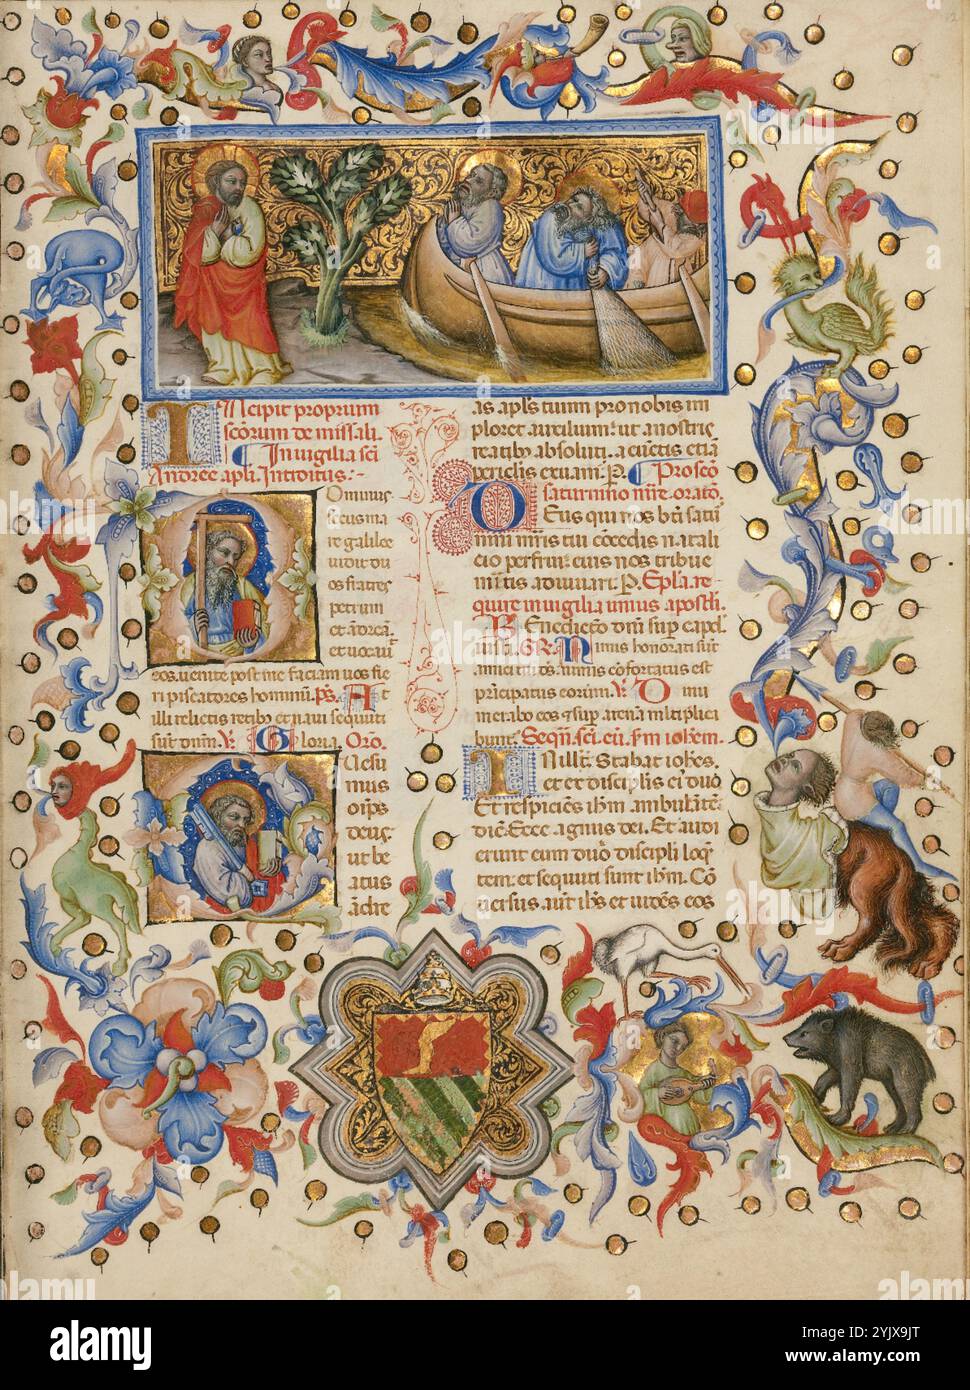 INcipit proprium
sc̄orum de missali.
In uigilia sc̄i
Andree apl̄i. Introitus:
Ominus
secus ma
re galilee
uidit du
os fratres
petrum
et andreā
et uocaui
eos. uenite post me faciam uos fie
ri piscatores hominū. p̄s. At
illi relictis retib; et naui sequuti
sūt dn̄m. ℣ Gloria. Or̄o.
Uesu
mus
om̄ps
deus
ut be
atus
ādre
as apl̄s tuum pro nobis im
ploret auxilium: ut a nostris
reatib; absoluti. a cūctis etiā
periclis exuam̄. P. Pro sc̄o
saturnino m̄re. orat̄o.
DEus qui nos bt̄i satur
nini m̄ris tui cōcedis natali
cio perfrui: eius nos tribue
m̄tis adiuuari. P. Epl̄a re
quire in uigilia unius apostl̄i.
Benedictō dn̄i sup capd̄
iusti. GR. Nimis honorati sūt
amici tui d̄s. nimis cōfortatus est
prīcipatus eorum. ℣ Dinu
merabo eos & sup arenā multiplica
bunt̄. Seqn̄. sc̄i. eū. s̄m ioh̄em.
IN ill̄. t. Stabat ioh̄es.
et ex discipl̄is ei' duo
Et respiciēs ih̄m ambulāte
dic̄. Ecce agnus dei. Et audi
erunt eum duo discipl̄i loq̄n
tem: et sequuti sunt ih̄m. Cō
uersus aūt ih̄s et uidēs eos
alamy
Image ID: 2YJX9JT
www.alamy.com